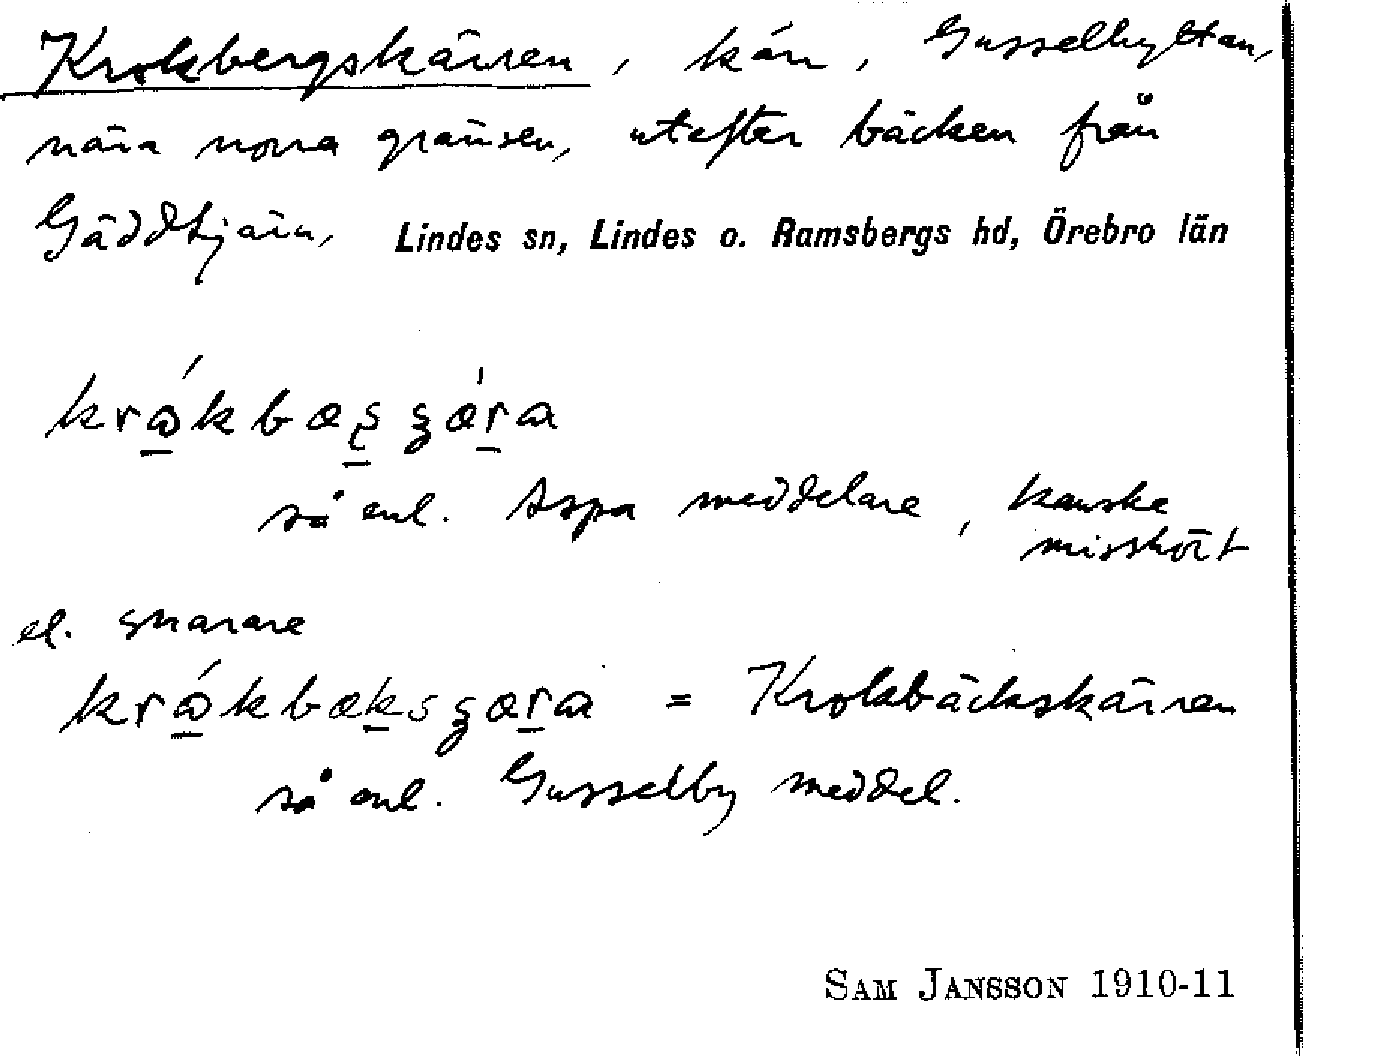 Krokbergskärren, kärr, Gusselhyttan,
nära norra gränsen, utefter bäcken från
Gäddtjärn, Lindes sn, Lindes o. Ramsbergs hd, Örebro län
så enl. Aspa meddelare, kanske
misshört
el. snarare
= Krokbäckskärren
så enl. Gusselby meddel.
SAM JANSSON 1910-11